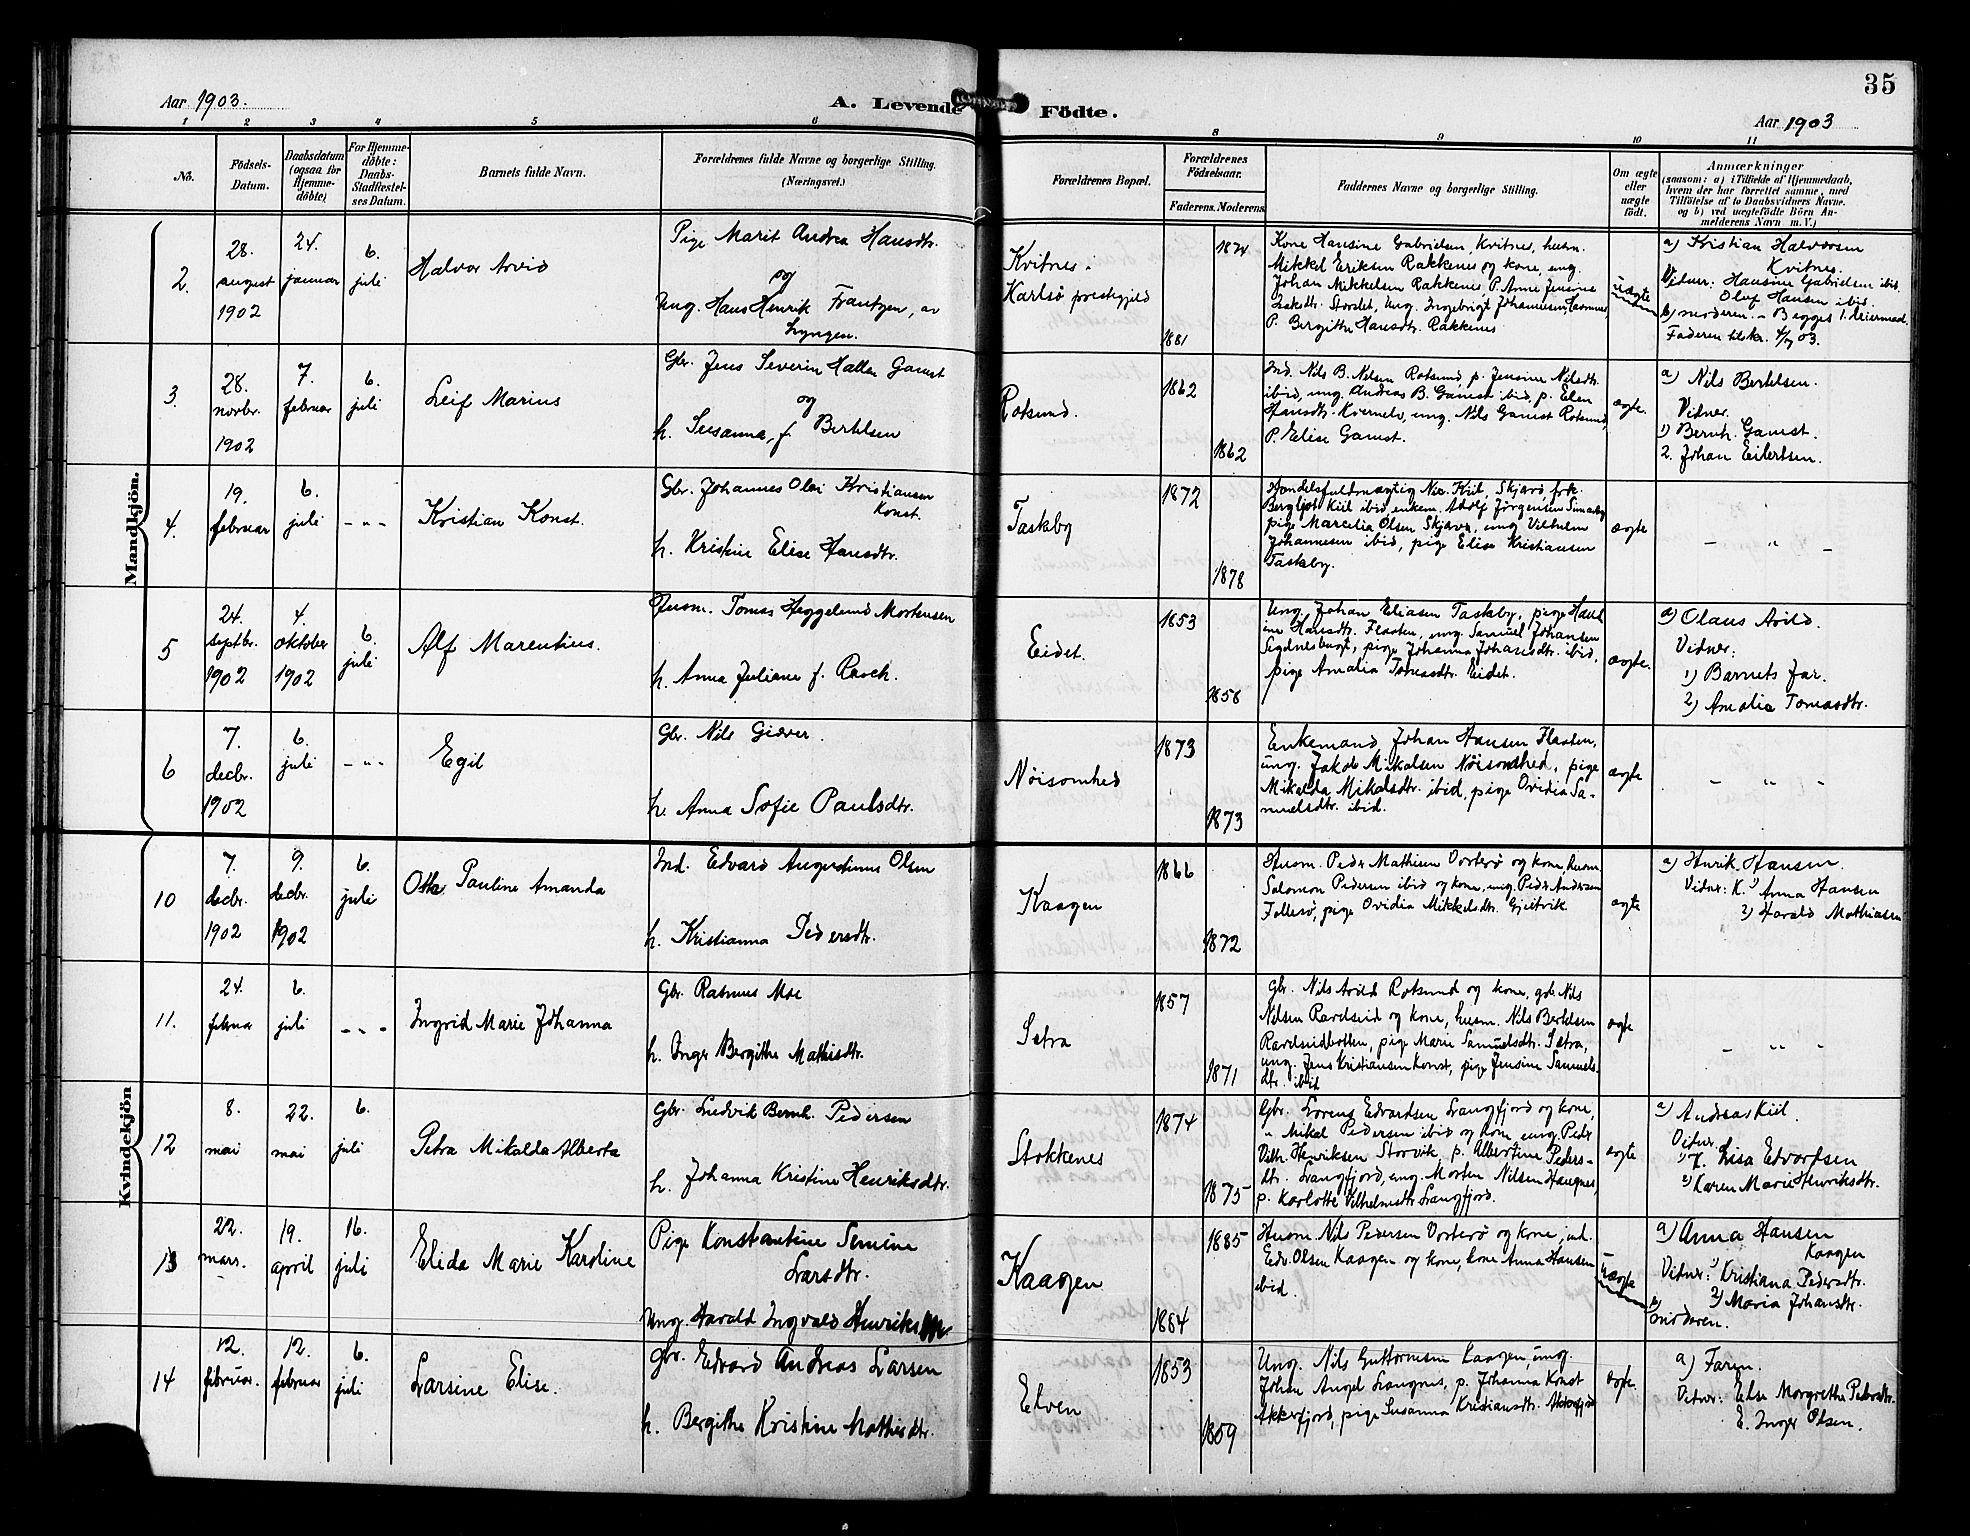 35
Aar 1903.
A. Levende Födte.
Aar 1903
1 2 3 4 5 6 8 9 10 11
No.
Födsels-
Datum.
Daabsdatum
(ogsaa for
Hjemme-
döbte)
For Hjemme-
döbte:
Daabs-
Stadfæstel-
ses Datum.
Barnets fulde Navn.
Forældrenes fulde Navne og borgerlige Stilling.
(Næringsvei.)
Forældrenes Bopæl.
Forældrenes
Födselsaar.
Faderens. Moderens.
Faddernes Navne og borgerlige Stilling.
Om ægte
eller
uægte
födt.
Anmærkninger
(saasom: a) i Tilfælde af Hjemmedaab,
hvem der har forrettet samme, med
Tilföielse af to Daabsvidners Navne.
og b) ved uægtefödte Börn An-
melderens Navn m. V.)
Mandkjön.
2.
28.
august
1902
24.
januar
6.
juli
Halvor Arvid
Pige Marit Andrea Hansdtr.
og
Ung. Hans Henrik Frantzen, av
Lyngen.
Kvitnes.
Karlsö prestegjeld
1874
1881
Kone Hansine Gabrielsen, Kvitnes, husm.
Mikkel Eriksen Rakkenes og kone, ung.
Johan Mikkelsen Rakkenes, P. Anne Jensine
Storslet, Ung. Ingebrigt Johannesen,
P. Bergithe Hansdtr. Rakkenes
uægte
a) Kristian Halvorsen
Kvitnes.
Vidner: Hansine Gabrielsen ibid.
Oluf Hansen ibid.
b) moderen. - Begges 1. leiermaal.
Faderen tilskr. 4/7 03.
3.
28.
novbr.
1902
7.
februar
6.
juli
Leif Marius
Gbr. Jens Severin Hallen Gamst
og
h. Susanna, f. Bertelsen
Rotsund.
1862
1862
Ind. Nils B. Nelsen Rotsund, p. Jensine Nilsdtr.
ibid, ung. Andreas B. Gamst ibid, p. Elen
Hansdtr. Kvænnes, ung. Nils Gamst Rotsund,
P. Elise Gamst.
ægte.
a) Nils Bertelsen.
Vidner.
1) Bernh. Gamst.
2. Johan Eilertsen.
4.
19.
februar
6.
juli
- " -
Kristian Konst.
Gbr. Johannes Olai Kristiansen
Konst.
h. Kristine Elise Hansdtr.
Taskby
1872
1878
Handelsfuldmægtig Nic. Kiil, Skjærö, frk.
Bergljot Kiil ibid, enkem. Adolf Jørgensen
pige Marcelia Olsen Skjærö, ung Vilhelm
Johannesen ibid, pige Elise Kristiansen
Taskby.
ægte
- " -
5
24.
septbr.
1902
4.
oktober
1902
6.
juli
Alf Marentius.
Husm. Tomas Heggelund Mortensen
h. Anna Juliane f. Rasch.
Eidet.
1853
1858
Ung. Johan Eliasen Taskby, pige Hans
ine Hansdtr. Flaaten, ung. Samuel Johansen
pige Johanna Johansdtr. ibid,
pige Amalia Tomasdtr. Eidet.
ægte.
a) Olaus Arild.
Vidner:
1) Barnets far.
2) Amalia Tomasdtr.
6
7.
decbr.
1902
6.
juli
- " -
Egil
Gbr. Nils Giæver.
h. Anna Sofie Paulsdtr.
Nöisomhed
1873
1873
Enkemand Johan Hansen Flaaten,
ung. Jakob Mikalsen Nöisomhed, pige
Mikalda Mikalsdtr. ibid, pige Ovidia Sa-
muelsdtr. ibid.
ægte
- " -
Kvindekjön
10
7.
decbr.
1902
9.
decbr.
1902
6.
juli
Otta Pauline Amanda
Ind. Edvard Augustinus Olsen
h. Kristianna Pedersdtr.
Kaagen
1866
1872
Husm. Peder Mathisen Vorterö og kone, husm.
Salomon Pedersen ibid og kone, ung. Peder Andersen
Follesö, pige Ovidia Mikkelsdtr. Gjeitvik.
ægte
a) Henrik Hansen.
Vidner: K. 1) Anna Hansen
2) Harald Mathiasen
11.
24.
februar
6.
juli
- " -
Ingrid Marie Johanna
Gbr. Rasmus Moe
h. Inger Bergithe Mathisdtr.
Setra
1857
1871
Gbr. Nils Arild Rotsund og kone, gbr. Nils
Nilsen Ravelseid og kone, husm. Nils Bertelsen
Ravelseidbotten, pige Marie Samuelsdtr. Setra,
ung. Jens Kristiansen Konst, pige Jensine Samuels-
dtr. ibid
ægte
- " -
12
8.
mai
22.
mai
6.
juli
Petra Mikalda Alberta
Gbr. Ludvik Bernh. Pedersen
h. Johanna Kristine Henriksdtr.
Stokkenes
1874
1875
Gbr. Lorens Edvardsen Langfjord og kone,
" Mikal Pedersen ibid og kone, ung. Peder
Vilh. Henriksen Storvik, p. Albertine Peders-
dtr. Langfjord, ung. Morten Nilsen Haugnes,
p. Karlotte Vilhelmsdtr. Langfjord.
ægte
a) Andreas Kiil.
Vidner
1) Lisa Edvardsen
2) Karen Marie Henriksdtr.
13
22.
mars.
19.
april
16.
juli
Elida Marie Karoline
Pige Konstantine Semine
Larsdtr.
Ung. Harald Ingvald Henriksen
Kaagen
1885
1884
Husm. Nils Pedersen Vorterö og kone, ind.
Edv. Olsen Kaagen og kone, kone Anna Hansen
ibid.
uægte
a) Anna Hansen
Kaagen
Vidner: 1) Kristiana Pedersdtr.
2) Maria Johansdtr.
b) moderen.
14
12.
februar.
12.
februar
6.
juli
Larsine Elise.
gbr. Edvard Andreas Larsen
h. Bergithe Kristine Mathisdtr.
Elven
1853
1859
Ung. Nils Guttormsen Kaagen, ung.
Johan Angel Langnes, p. Johanna Konst
Akkerfjord, pige Susanna Kristiansdtr.
ægte.
a) Faren.
Vidner: Else Margrethe Pedersdtr.
E. Inger Olsen.